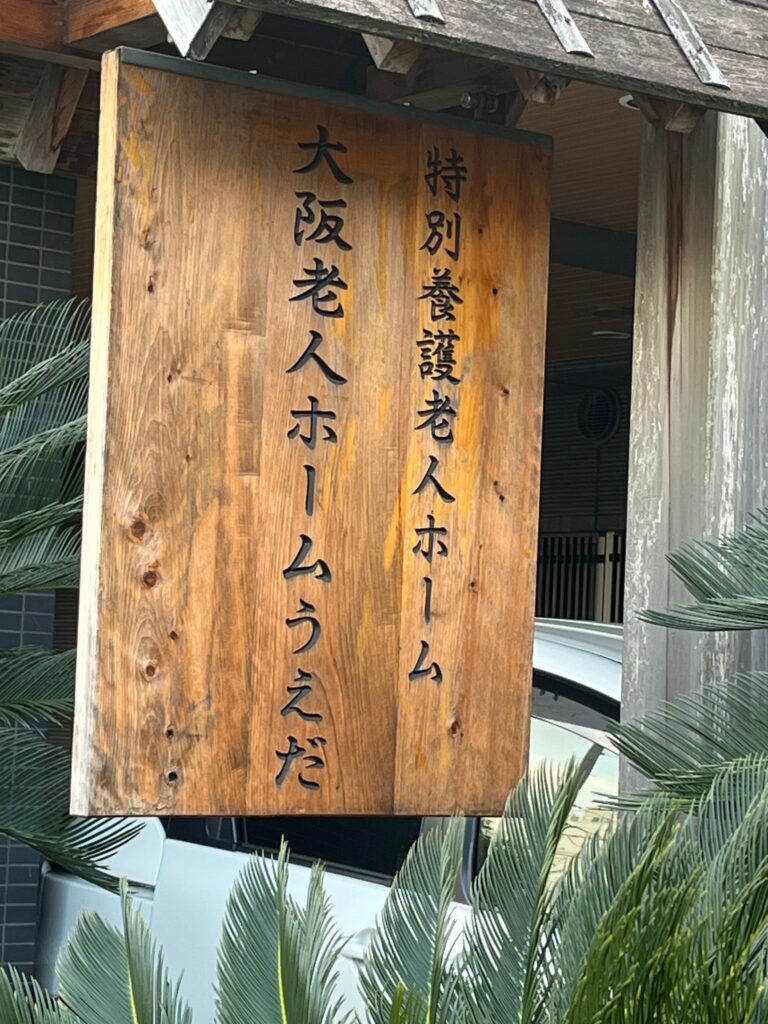 特別養護老人ホーム
大阪老人ホームうえだ